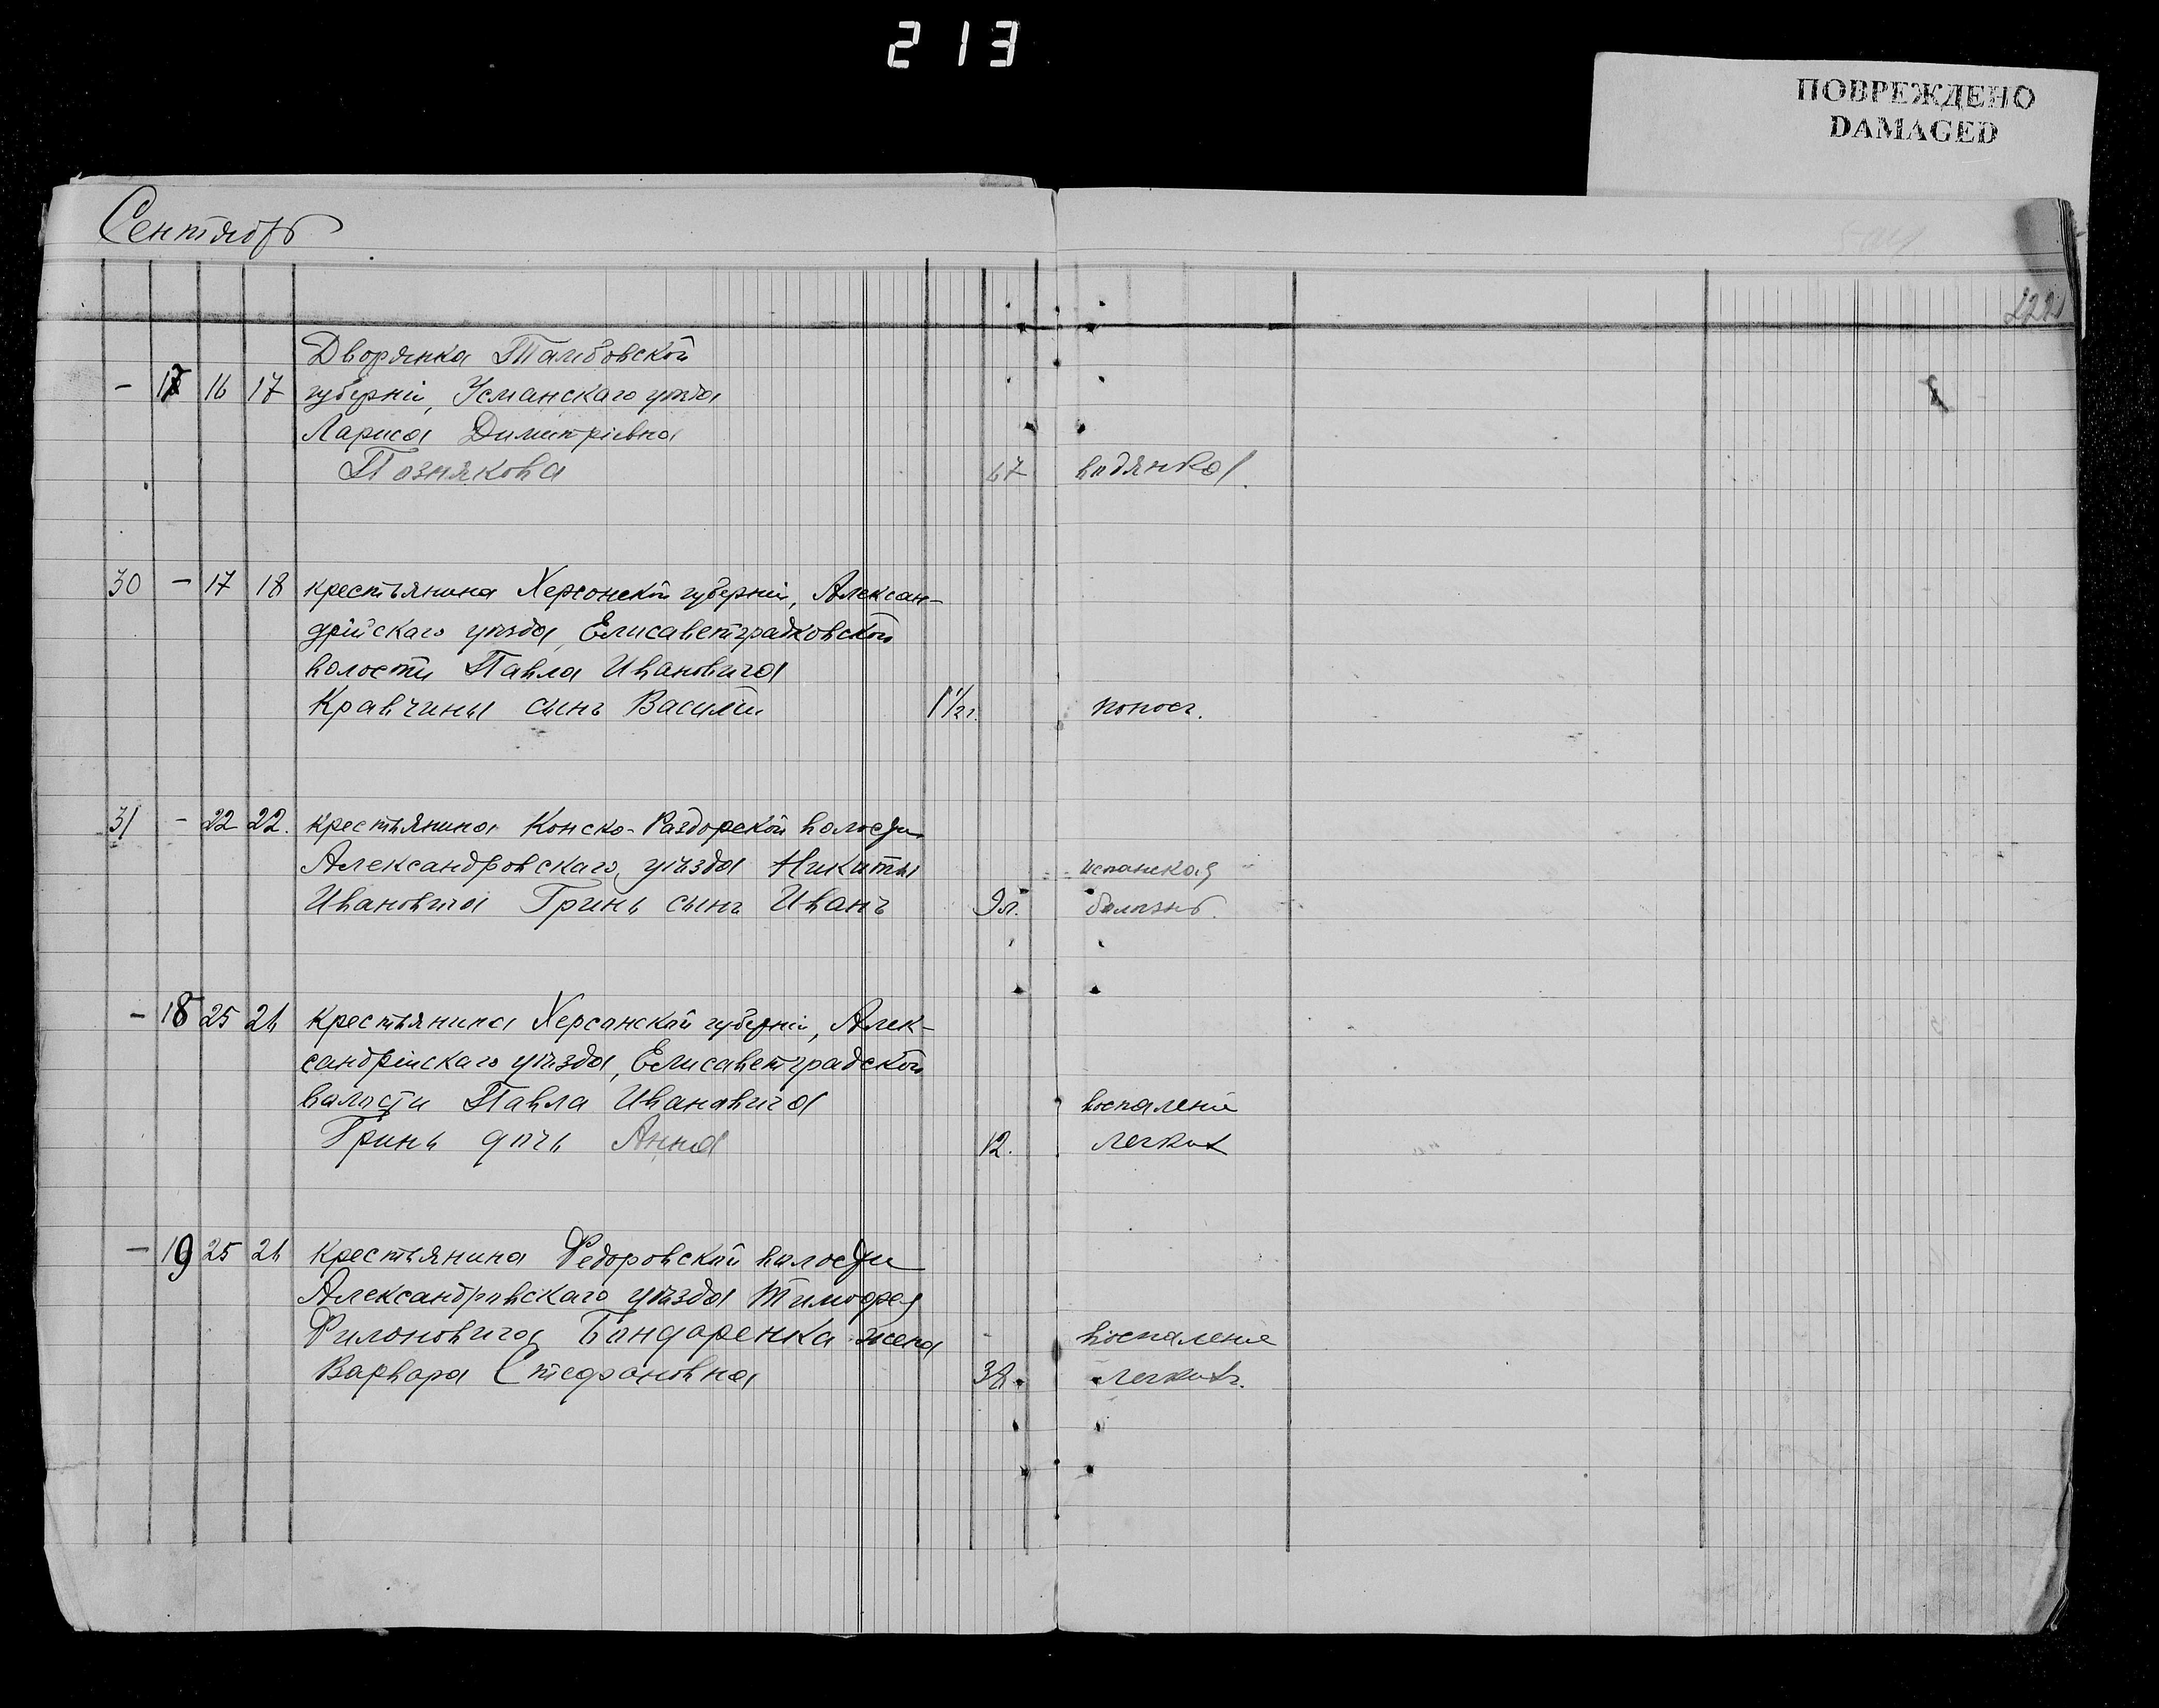 213
ПОВРЕЖДЕНО
DAMAGED
Сентябрь
222
Дворянка Тамбовской
– 17 16 17 губерніи, Усманскаго уѣзда
Лариса Димитріевна
Познякова 67 водянка.
30 – 17 18 крестьянина Херсонской губерніи, Алексан-
дрійскаго уѣзда, Елисаветградковской
волости Павла Ивановича
Кравчины сынъ Василій 1 1/2 г. поносъ.
31 – 22 22. крестьянина Конско-Раздорской волости
Александровскаго уѣзда Никиты испанская
Ивановича Гринь сынъ Иванъ 9 л. болѣзнь.
– 18 25 26 крестьянина Херсанской губерніи, Алек-
сандрійскаго уѣзда, Елисаветградской
валости Павла Ивановича воспаленіе
Гринь дочь Анна 12. легких
– 19 25 26 крестьянина Федоровской волости
Александровскаго уѣзда Тимофея
Филоновича Бандаренка жена воспаление
Варвара Стефановна 38. легкихъ.